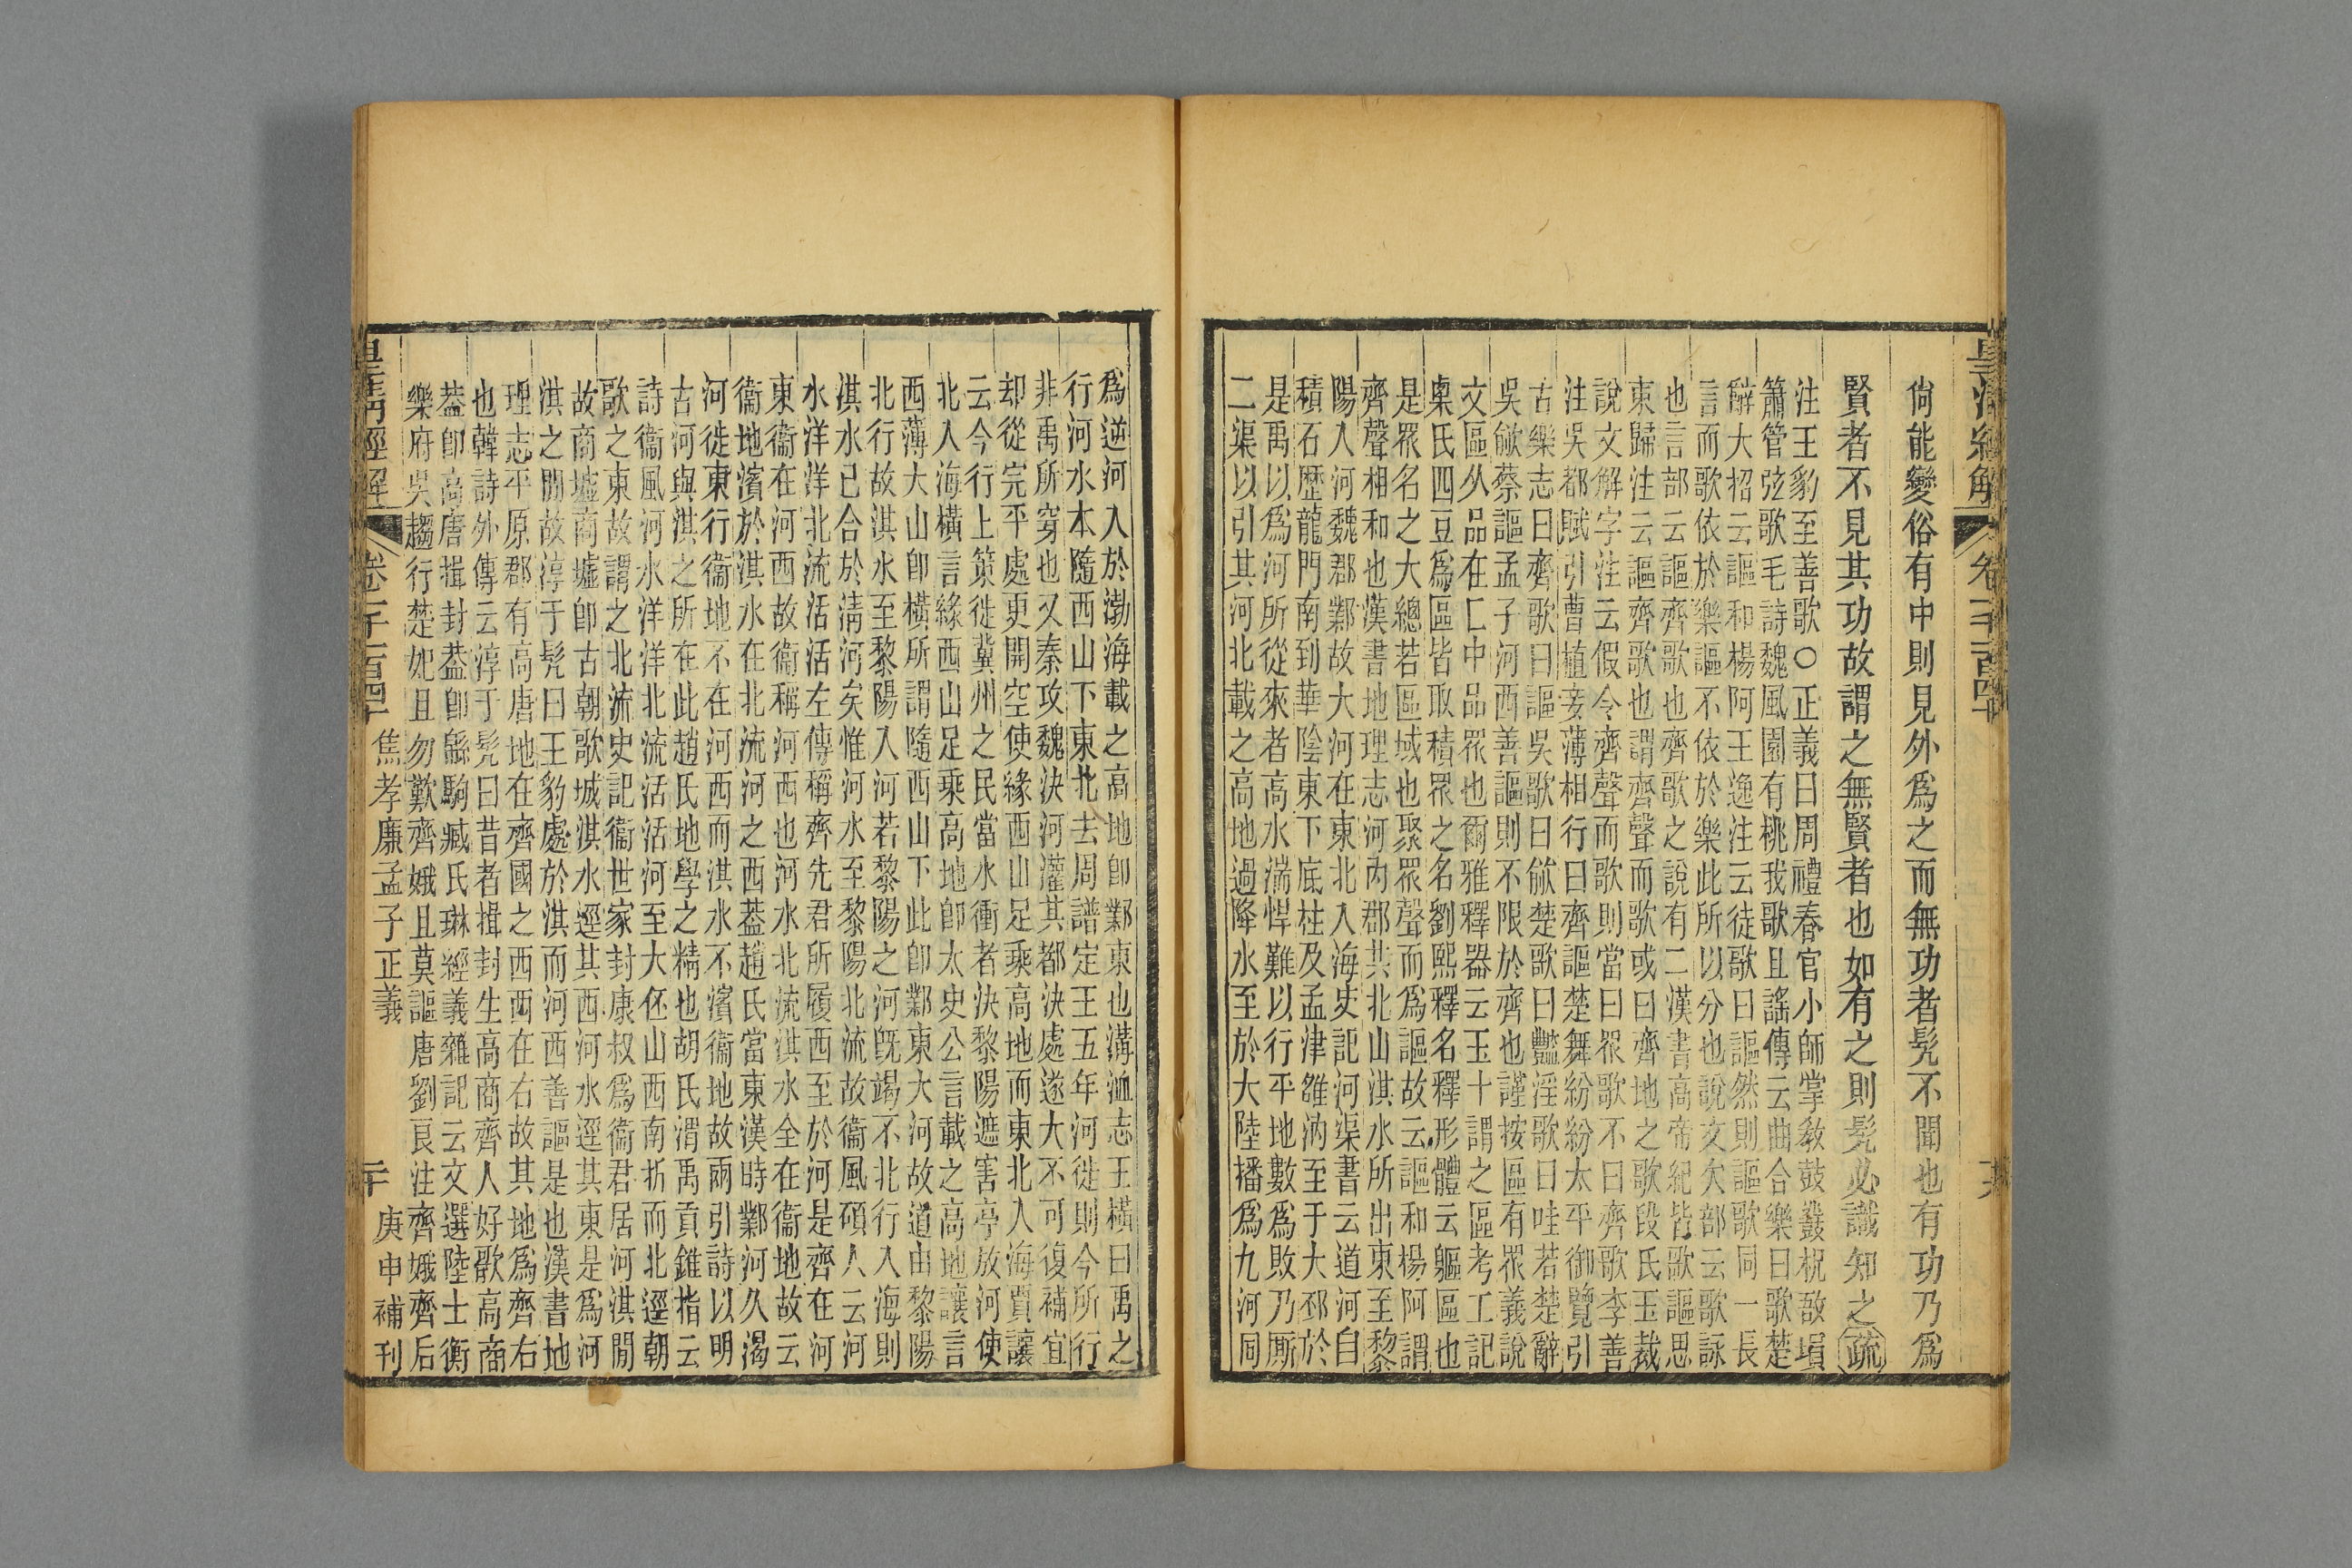 尙能變俗有中則見外爲之而無功者髠不聞也有功乃爲
賢者不見其功故謂之無賢者也如有之則髠必識知之疏
注王豹至善歌○正義曰周禮春官小師掌敎鼓鼗柷敔塤
簫管弦歌毛詩魏風園有桃我歌且謠傳云曲合樂曰歌楚
辭大招云謳和楊阿王逸注云徒歌曰謳然則謳歌同一長
言而歌依於樂謳不依於樂此所以分也說文欠部云歌詠
也言部云謳齊歌也齊歌之說有二漢書高帝紀皆歌謳思
東歸注云謳齊歌也謂齊聲而歌或曰齊地之歌段氏玉裁
說文解字注云假令齊聲而歌則當曰眾歌不曰齊歌李善
注吳都賦引曹植妾薄相行曰齊謳楚舞紛紛太平御覽引
古樂志曰齊歌曰謳吳歌曰歈楚歌曰豔淫歌曰哇若楚辭
吳歈蔡謳孟子河西善謳則不限於齊也謹按區有眾義說
文區从品在匸中品眾也爾雅釋器云玉十謂之區考工記
㮚氏四豆爲區皆取積眾之名劉熙釋名釋形體云軀區也
是眾名之大總若區域也聚眾聲而爲謳故云謳和楊阿謂
齊聲相和也漢書地理志河內郡共北山淇水所出東至黎
陽入河魏郡鄴故大河在東北入海史記河渠書云道河自
積石歷龍門南到華陰東下底柱及孟津雒汭至于大邳於
是禹以爲河所從來者高水湍悍難以行平地數爲敗乃厮
二渠以引其河北載之高地過降水至於大陸播爲九河同
爲逆河入於渤海載之高地卽鄴東也溝洫志王橫曰禹之
行河水本隨西山下東北去周譜定王五年河徙則今所行
非禹所穿也又秦攻魏決河灌其都決處遂大不可復補宜
却從完平處更開空使緣西山足乘高地而東北入海賈讓
云今行上策徙冀州之民當水衝者決黎陽遮害亭放河使
北入海橫言緣西山足乘高地卽太史公言載之高地讓言
西薄大山卽橫所謂隨西山下此卽鄴東大河故道由黎陽
北行故淇水至黎陽入河若黎陽之河旣竭不北行入海則
淇水已合於淸河矣惟河水至黎陽北流故衞風碩人云河
水洋洋北流活活左傳稱齊先君所履西至於河是齊在河
東衞在河西故衞稱河西也河水北流淇水全在衞地故云
衞地濱於淇水在北流河之西葢趙氏當東漢時鄴河久渴
河徙東行衞地不在河西而淇水不濱衞地故兩引詩以明
古河與淇之所在此趙氏地學之精也胡氏渭禹貢錐指云
詩衞風河水洋洋北流活活河至大伾山西南折而北逕朝
歌之東故謂之北流史記衞世家封康叔爲衞君居河淇閒
故商墟商墟卽古朝歌城淇水逕其西河水逕其東是爲河
淇之閒故淳于髡曰王豹處於淇而河西善謳是也漢書地
理志平原郡有高唐地在齊國之西西在右故其地爲齊右
也韓詩外傳云淳于髡曰昔者揖封生高商齊人好歌高商
葢卽高唐揖封葢卽緜駒臧氏琳經義雜記云文選陸士衡
樂府吳趨行楚妃且勿歎齊娥且莫謳唐劉良注齊娥齊后
焦孝廉孟子正義
庚申補刊